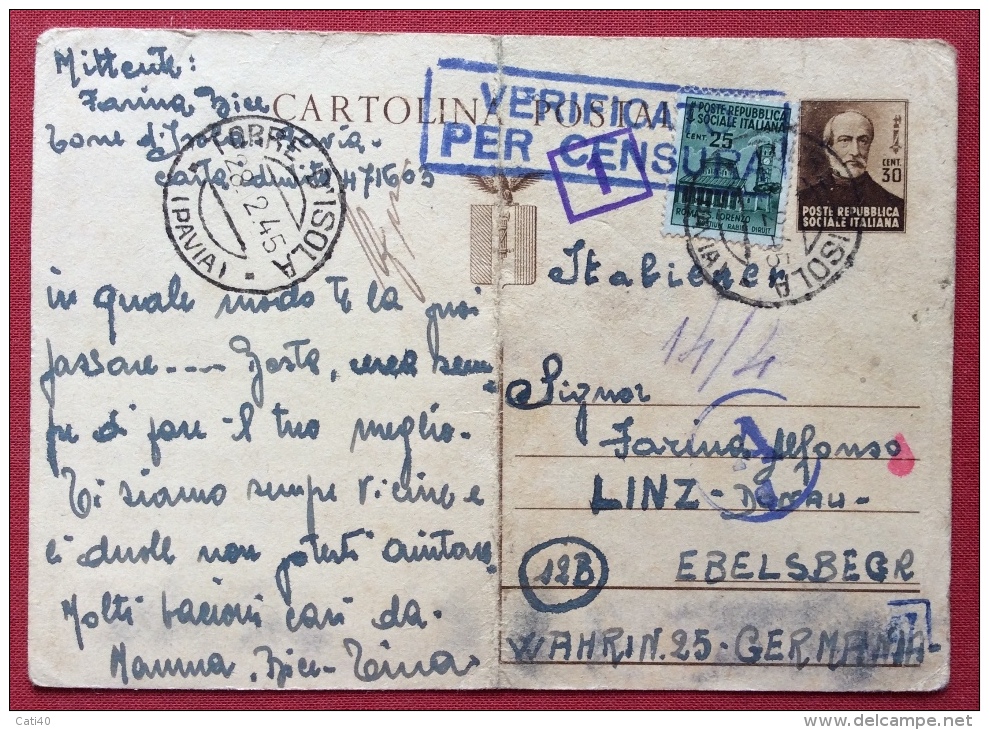 Mittente:
Farina Bice
Torre d'Isola Pavia.
carta id. 471663
CARTOLINA POSTALE
VERIFICATO
PER CENSURA
1
POSTE REPUBBLICA
SOCIALE ITALIANA
CENT 25
ROMA S. LORENZO
HOSTIUM RABIES DIRUIT
CENT.
30
POSTE REPUBBLICA
SOCIALE ITALIANA
TORRE D'ISOLA
28 2.45
(PAVIA)
Italienen
14/4
in quale modo te la puoi
passare .... Basta, cerca sem=
pre di fare il tuo meglio.
Ti siamo sempre vicine e
ci duole non poterti aiutare
Molti bacioni cari da.
Mamma, Bice - Tina
Signor
Farina Alfonso
LINZ - Donau -
12B
EBELSBEGR
WAHRIN. 25 - GERMANIA -
Cati40
www.delcampe.net